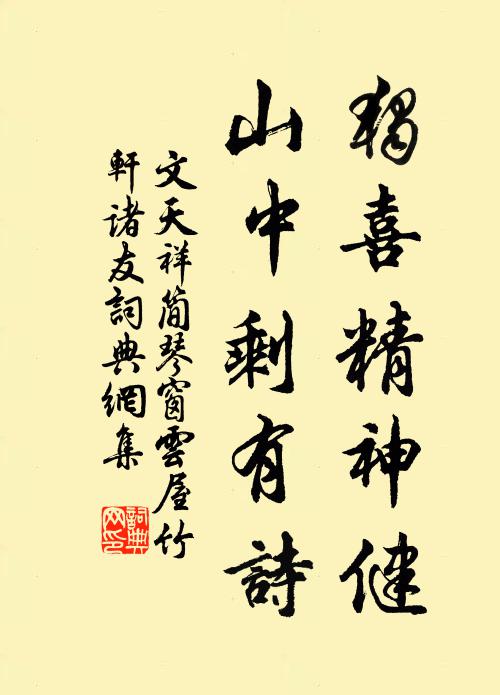 獨喜精神健
山中剩有詩
文天祥简琴窗雲屋竹
軒诸友詞典網集
詞典網印